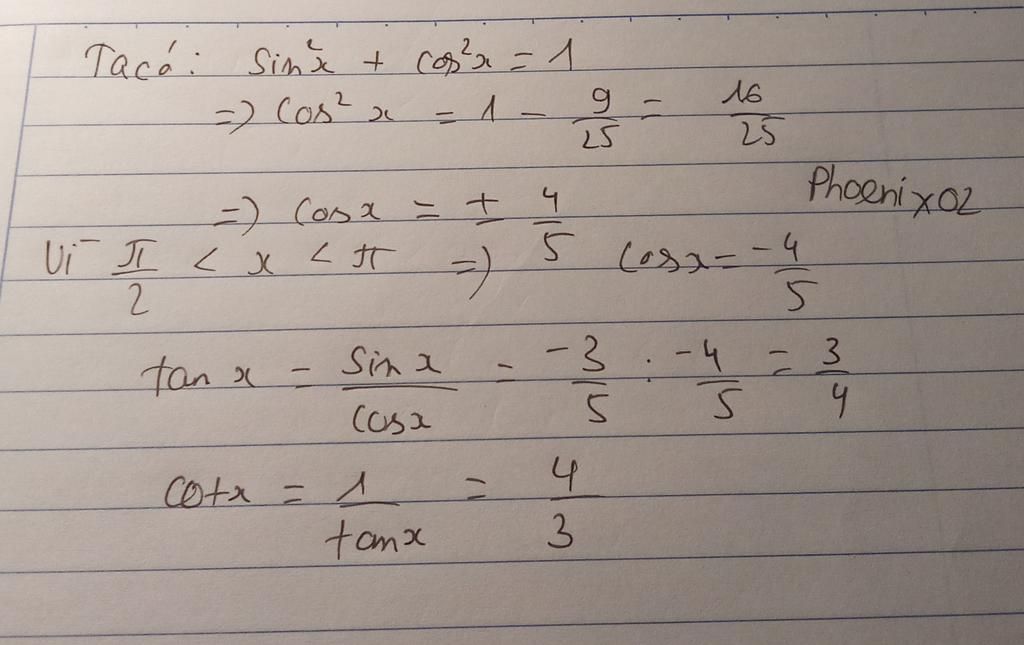 Ta có: sin²x + cos²x = 1
=> cos² x = 1 - 9/25 = 16/25
=> cosx = ± 4/5
Phoenix02
Vì π/2 < x < π => cosx = -4/5
tan x = sin x/cosx = -3/5 : -4/5 = 3/4
cotx = 1/tanx = 4/3